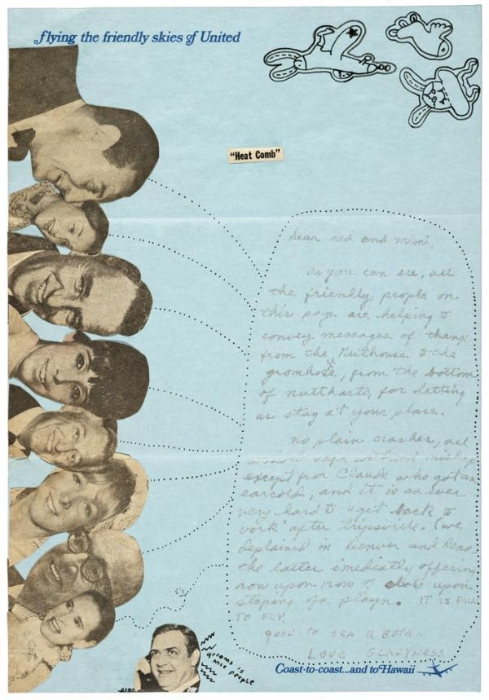 flying the friendly skies of United
"Heat Comb"
dear red and mimi,
as you can see, all
the friendly people on
this page are helping to
convey messages of thanx
from the Nutthouse to the
gromhole, from the bottom
of nuttharts, for letting
us stay at your place.
no plain crashes, all
except for Claude who got an
earcold, and it is as ever
very hard to "get back to
work" after tripsville. I've
deplained in Denver and Reno,
the latter imediatly offering
row upon row of slots upon
steping off playn. IT IS FUN
TO FLY.
GOOD TO SEA U BOTH.
LOVE
nice people
Coast-to-coast...and to Hawaii